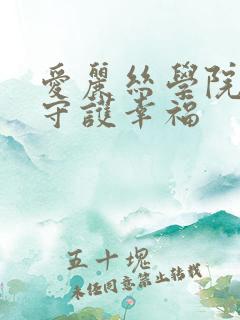 愛麗絲學院
守護幸福
五十塊
未經同意禁止轉載